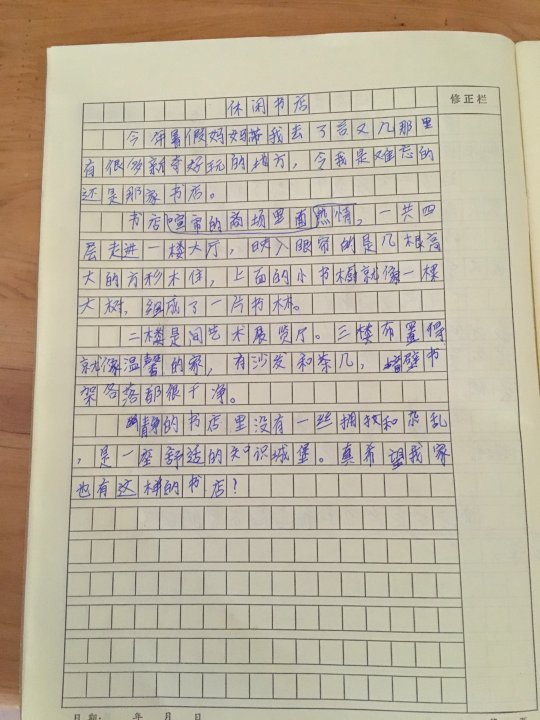 修正栏
休闲书店
今年暑假妈妈带我去了台又几那里
有很多新奇好玩的地方，令我是难忘的
还是那家书店。
书店喧帘的商场里面热情，一共四
层走进一楼大厅，映入眼帘的是几根高
大的方形木住，上面的小书橱就像一棵
大树，组成了一片书林。
二楼是间艺术展览厅。三楼布置得
就像温馨的家，有沙发和茶几，墙壁书
架各落都很干净。
静的书店里没有一丝拥牧和杂乱
，是一座舒适的知识城堡。真希望我家
也有这样的书店？
日期： 年 月 日